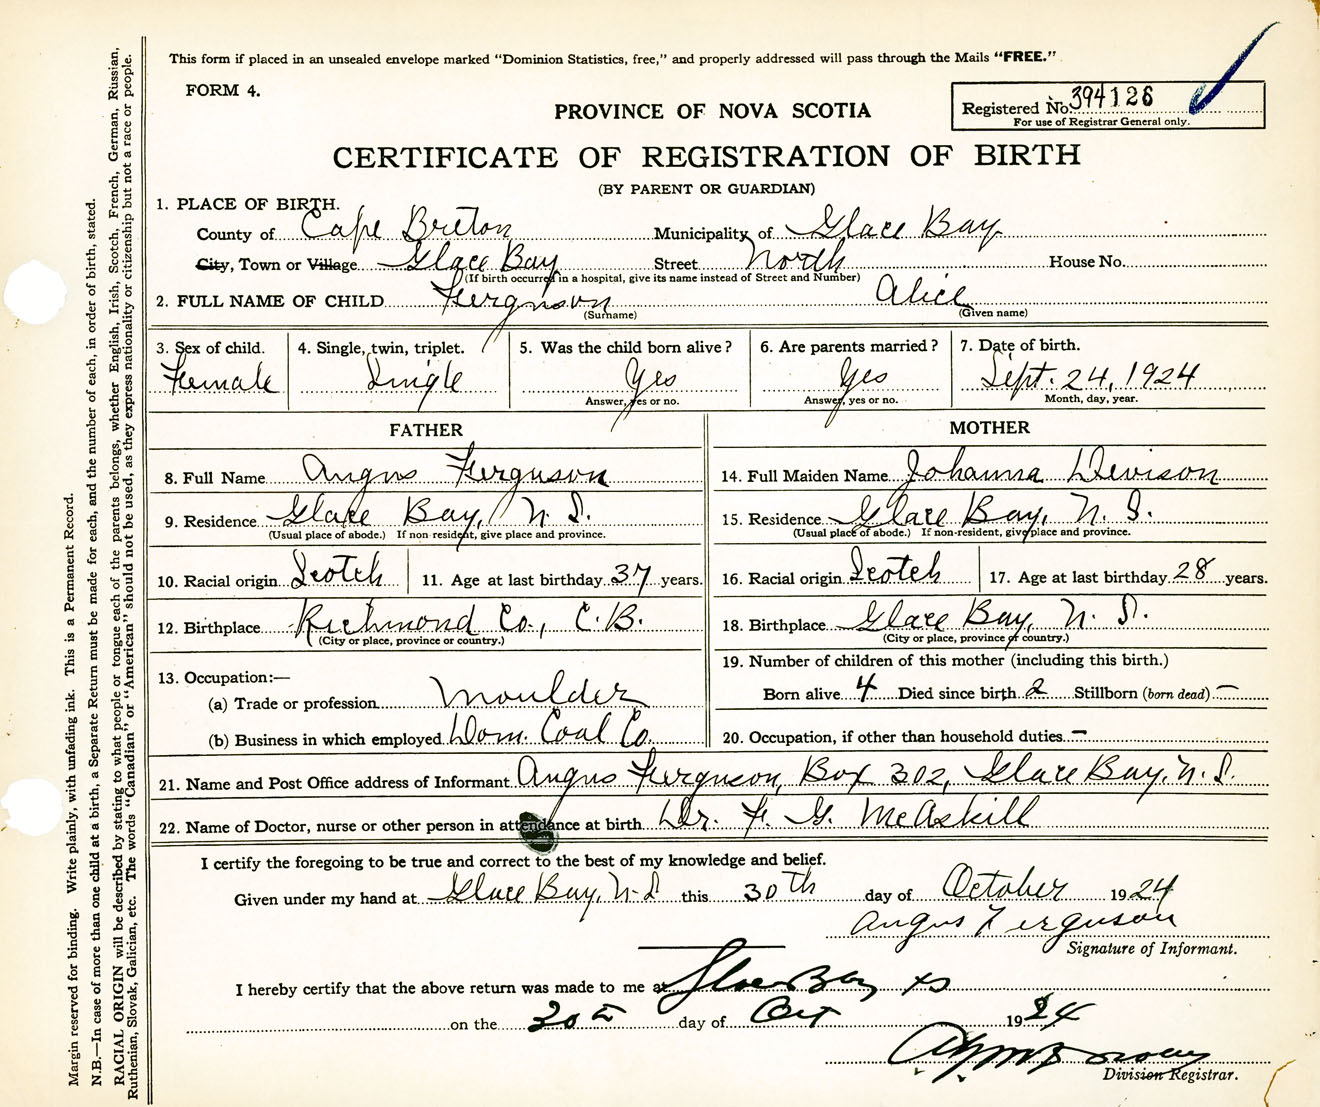 This form if placed in an unsealed envelope marked "Dominion Statistics, free," and properly addressed will pass through the Mails "FREE."
FORM 4.
PROVINCE OF NOVA SCOTIA
Registered No. 394126
For use of Registrar General only.
CERTIFICATE OF REGISTRATION OF BIRTH
(BY PARENT OR GUARDIAN)
1. PLACE OF BIRTH.
County of Cape Breton Municipality of Glace Bay
City, Town or Village Glace Bay Street North House No.
(If birth occurred in a hospital, give its name instead of Street and Number)
2. FULL NAME OF CHILD Ferguson Alice
(Surname) (Given name)
3. Sex of child. 4. Single, twin, triplet. 5. Was the child born alive? 6. Are parents married? 7. Date of birth.
Female Single Yes Yes Sept. 24, 1924
Answer, yes or no. Answer, yes or no. Month, day, year.
FATHER MOTHER
8. Full Name Angus Ferguson 14. Full Maiden Name Johanna Devison
9. Residence Glace Bay, N. S. 15. Residence Glace Bay, N. S.
(Usual place of abode.) If non-resident, give place and province. (Usual place of abode.) If non-resident, give place and province.
10. Racial origin Scotch 11. Age at last birthday 37 years. 16. Racial origin Scotch 17. Age at last birthday 28 years.
12. Birthplace Richmond Co., C. B. 18. Birthplace Glace Bay, N. S.
(City or place, province or country.) (City or place, province or country.)
13. Occupation:—
(a) Trade or profession Moulder
(b) Business in which employed Dom. Coal Co.
19. Number of children of this mother (including this birth.)
Born alive 4 Died since birth 2 Stillborn (born dead) —
20. Occupation, if other than household duties —
21. Name and Post Office address of Informant Angus Ferguson, Box 302, Glace Bay, N. S.
22. Name of Doctor, nurse or other person in attendance at birth Dr. F. G. McAskill
I certify the foregoing to be true and correct to the best of my knowledge and belief.
Given under my hand at Glace Bay, N. S this 30th day of October 1924
Angus Ferguson
Signature of Informant.
I hereby certify that the above return was made to me at Glace Bay NS
on the 30th day of Oct 1924
Division Registrar.
Margin reserved for binding. Write plainly, with unfading ink. This is a Permanent Record.
N.B.—In case of more than one child at a birth, a Separate Return must be made for each, and the number of each, in order of birth, stated.
RACIAL ORIGIN will be described by stating to what people or tongue each of the parents belongs, whether English, Irish, Scotch, French, German, Russian,
Ruthenian, Slovak, Galician, etc. The words "Canadian" or "American" should not be used, as they express nationality or citizenship but not a race or people.